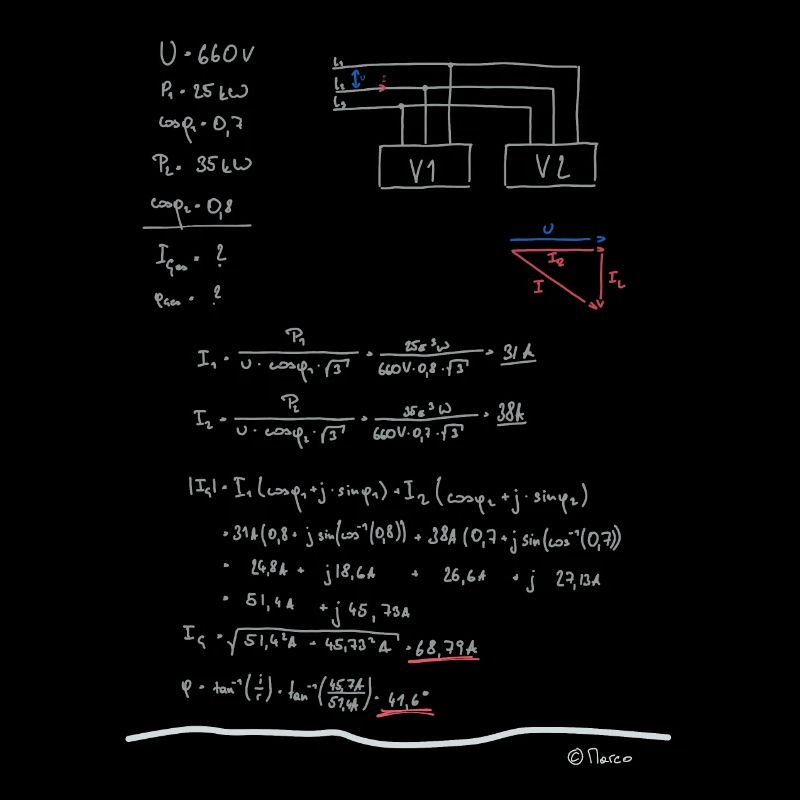 U = 660V
P₁ = 25kW
cosφ₁ = 0,7
P₂ = 35kW
cosφ₂ = 0,8
I_Ges = ?
φ_Ges = ?
L₁
U
L₂
L₃
V1 V2
U
I_R
I I_L
I₁ = P₁ / (U · cosφ₁ · √3) = 25E³W / (660V · 0,8 · √3) = 31A
I₂ = P₂ / (U · cosφ₂ · √3) = 35E³W / (660V · 0,7 · √3) = 38A
|I_G| = I₁ (cosφ₁ + j · sinφ₁) + I₂ (cosφ₂ + j · sinφ₂)
= 31A (0,8 + j sin(cos⁻¹(0,8)) + 38A (0,7 + j sin(cos⁻¹(0,7))
= 24,8A + j18,6A + 26,6A + j 27,13A
= 51,4A + j 45,73A
I_G = √(51,4²A + 45,73²A) = 68,79A
φ = tan⁻¹(i/r) = tan⁻¹(45,7A/51,4A) = 41,6°
© Marco